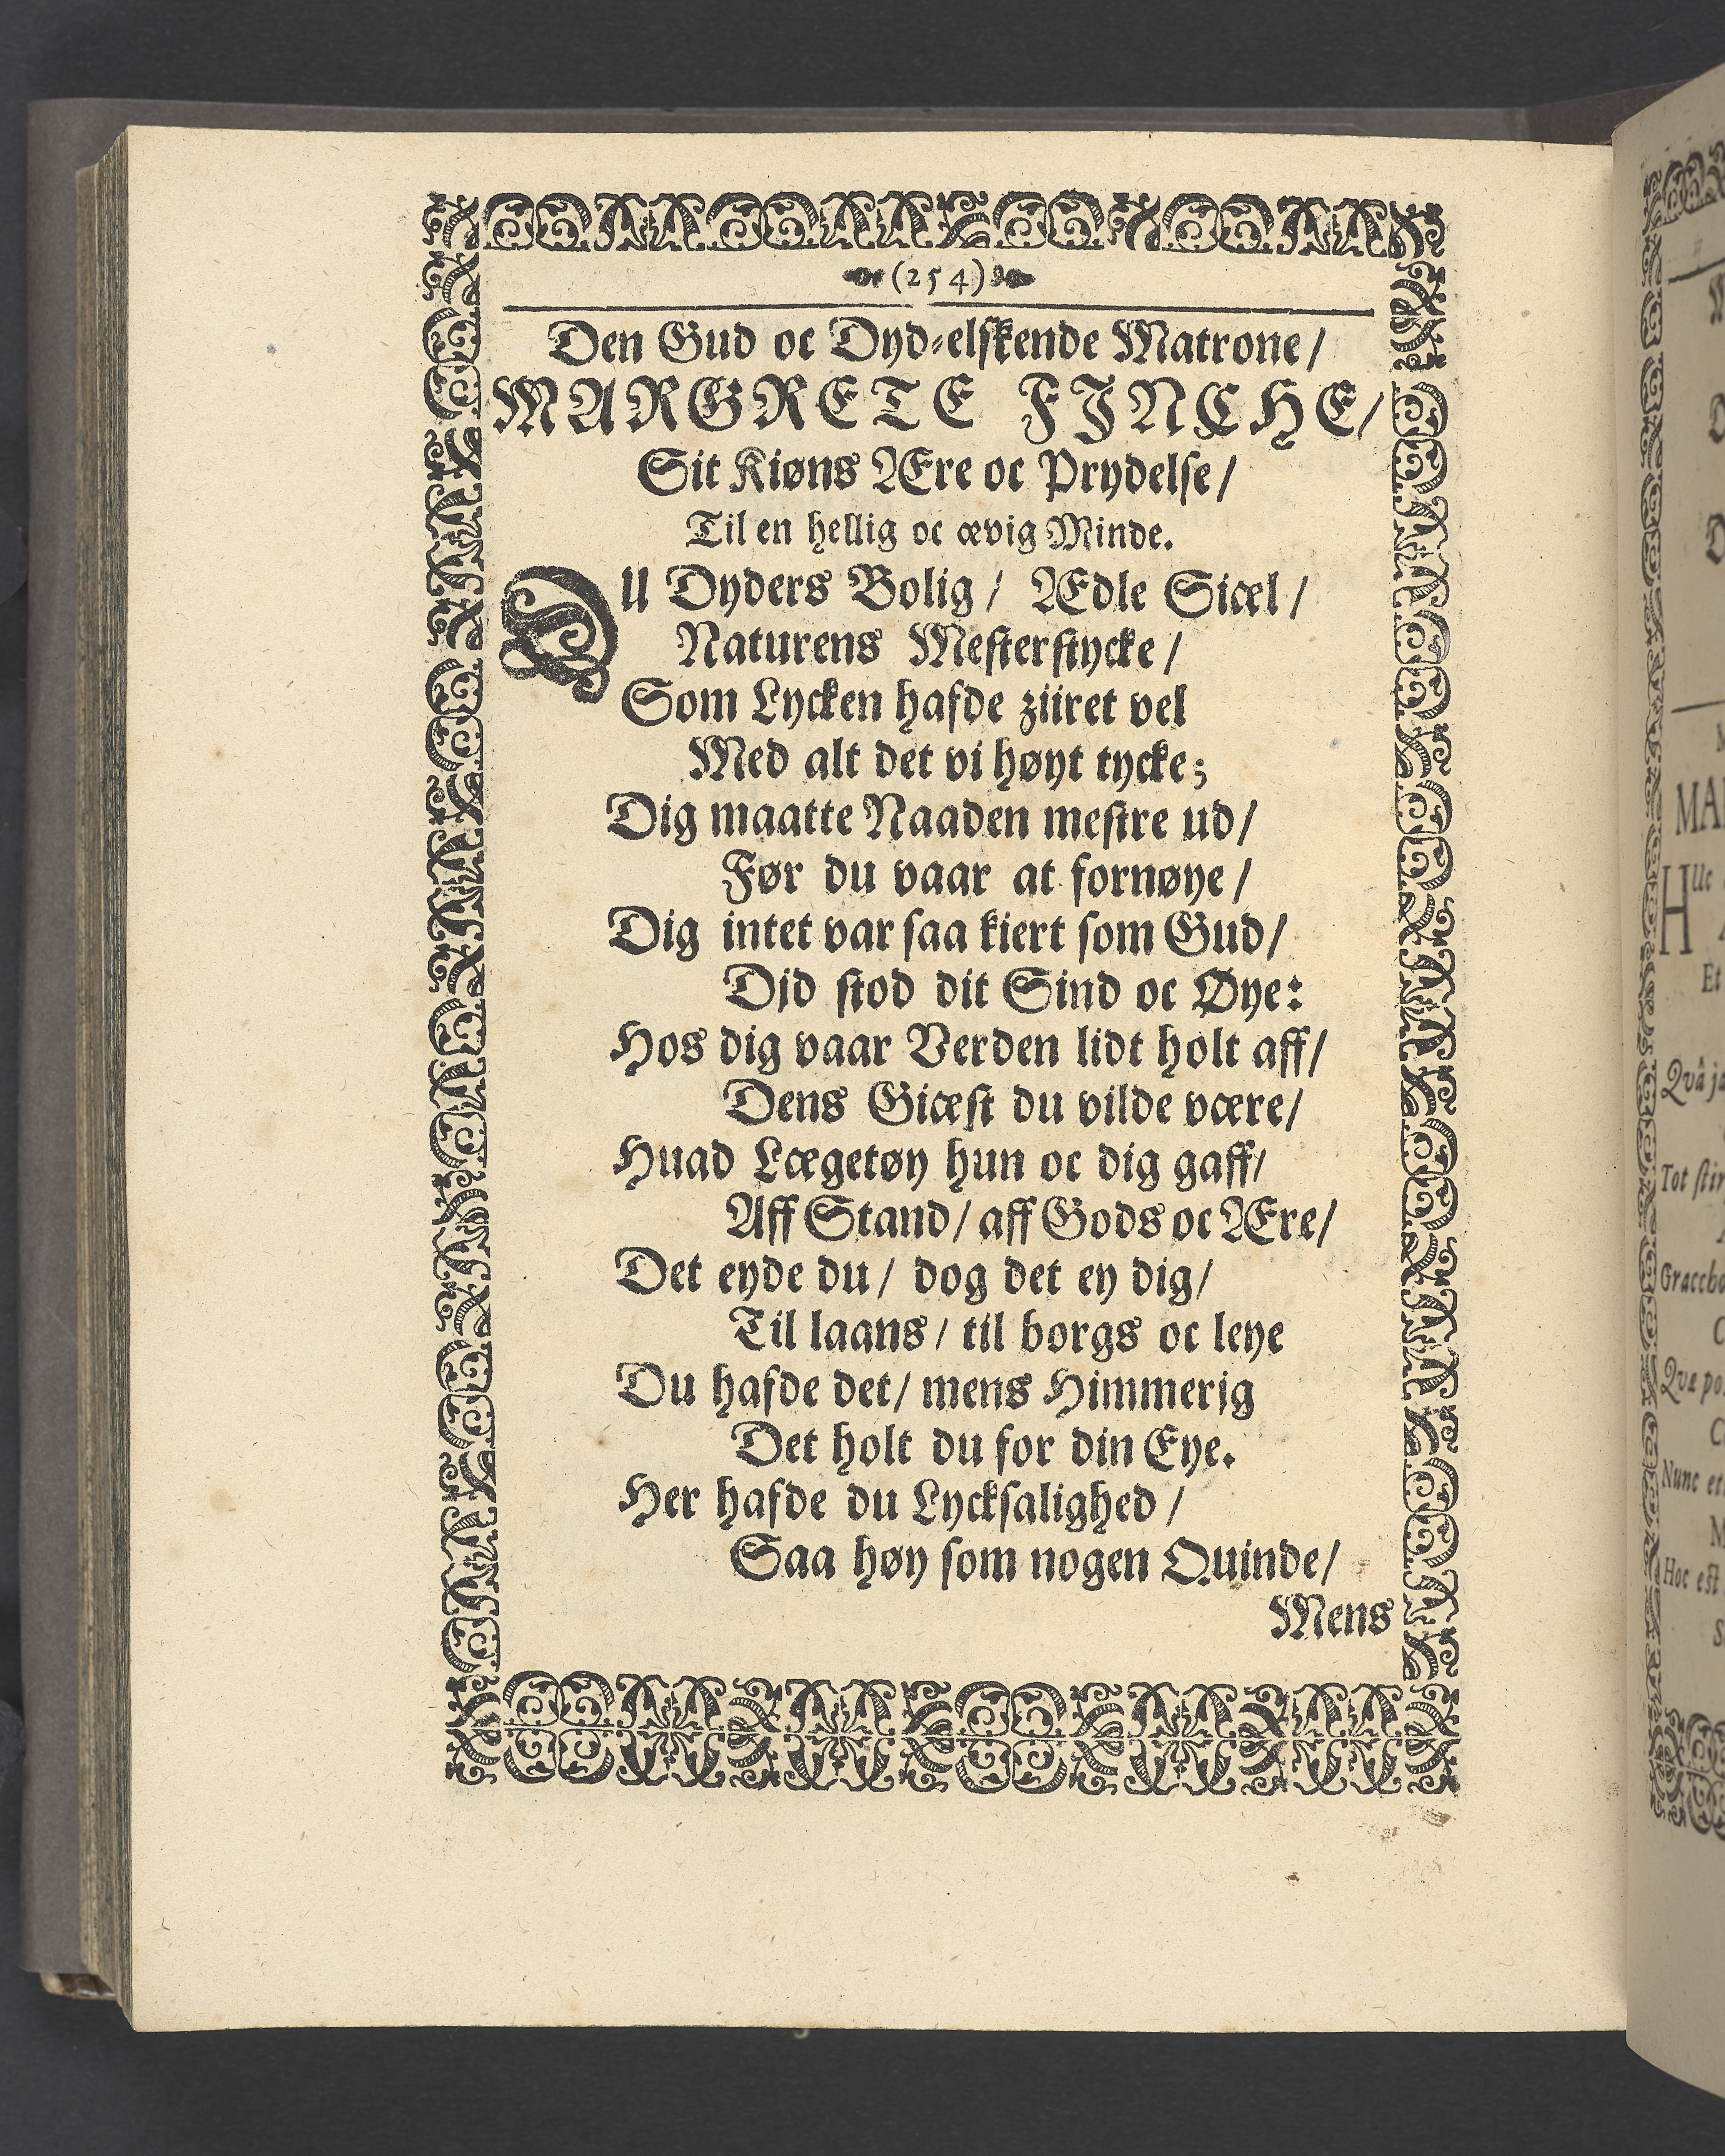 (254)
Den Gud oc Dyd-elskende Matrone/
MARGRETE FINCHE/
Sit Kiøns Ære oc Prydelse/
Til en hellig oc ævig Minde.
DU Dyders Bolig/ Ædle Siæl/
Naturens Mesterstycke/
Som Lycken hafde ziiret vel
Med alt det vi høyt tycke;
Dig maatte Naaden mestre ud/
Før du vaar at fornøye/
Dig intet var saa kiert som Gud/
Did stod dit Sind oc Øye:
Hos dig vaar Verden lidt holt aff/
Dens Giæst du vilde være/
Huad Lægetøy hun oc dig gaff/
Aff Stand/ aff Gods oc Ære/
Det eyde du/ dog det ey dig/
Til laans/ til borgs oc leye
Du hafde det/ mens Himmerig
Det holt du for din Eye.
Her hafde du Lycksalighed/
Saa høy som nogen Quinde/
Mens
MA
HUc
Et
Qvâ
Tot
Graccho
Qvæ
Nunc
Hoc est